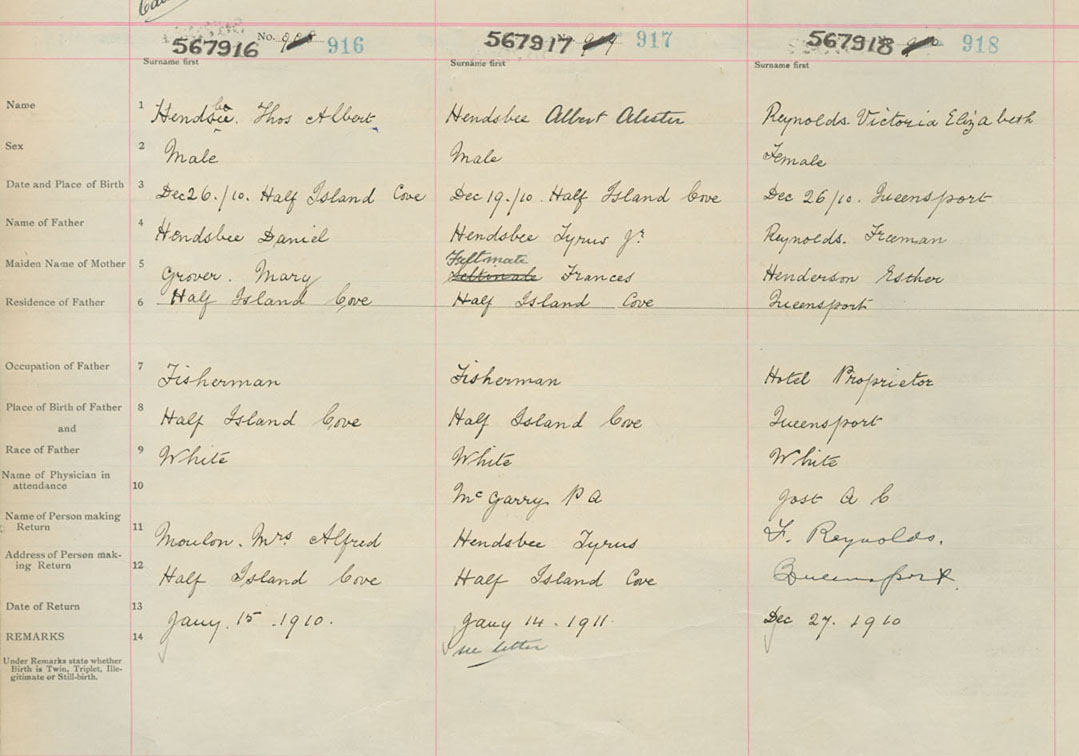 567916 No. 916
567917 917
567918 918
Surname first Surname first Surname first
Name 1 Hendsbee. Thos Albert Hendsbee Albert Alister Reynolds. Victoria Elizabeth
Sex 2 Male Male Female
Date and Place of Birth 3 Dec 26./10. Half Island Cove Dec 19./10. Half Island Cove Dec 26/10. Queensport
Name of Father 4 Hendsbee Daniel Hendsbee Tyrus Jr Reynolds. Freeman
Maiden Name of Mother 5 Grover. Mary Feltmate Frances Henderson Esther
Residence of Father 6 Half Island Cove Half Island Cove Queensport
Occupation of Father 7 Fisherman Fisherman Hotel Proprietor
Place of Birth of Father 8 Half Island Cove Half Island Cove Queensport
and
Race of Father 9 White White White
Name of Physician in
attendance 10 McGarry P A Jost A C
Name of Person making
Return 11 Moulon. Mrs Alfred Hendsbee Tyrus F. Reynolds.
Address of Person mak-
ing Return 12 Half Island Cove Half Island Cove Queensport
Date of Return 13 Jany. 15. 1910. Jany 14. 1911 Dec 27. 1910
REMARKS 14 see letter
Under Remarks state whether
Birth is Twin, Triplet, Ille-
gitimate or Still-birth.